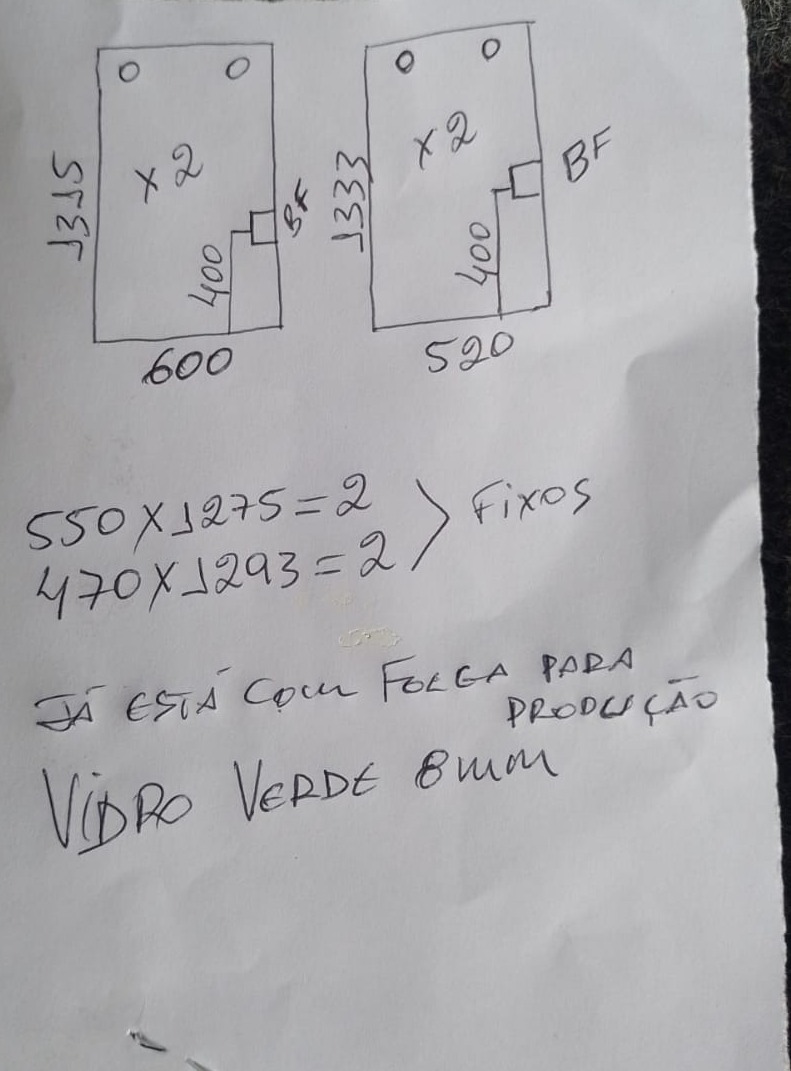 x 2
1315
BF
400
600
x 2
1333
BF
400
520
550 X 1275 = 2
470 X 1293 = 2
> Fixos
JÁ ESTÁ COM FOLGA PARA
PRODUÇÃO
VIDRO VERDE 8mm